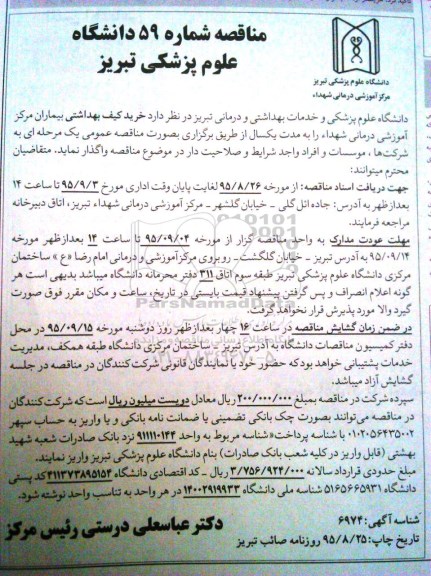 مناقصه شماره ۵۹ دانشگاه
علوم پزشکی تبریز
دانشگاه علوم پزشکی تبریز
مرکز آموزشی درمانی شهداء
دانشگاه علوم پزشکی و خدمات بهداشتی و درمانی تبریز در نظر دارد خرید کیف بهداشتی بیماران مرکز
آموزشی درمانی شهداء را به مدت یکسال از طریق برگزاری بصورت مناقصه عمومی یک مرحله ای به
شرکت‌ها ، موسسات و افراد واجد شرایط و صلاحیت دار در موضوع مناقصه واگذار نماید. متقاضیان
محترم میتوانند:
جهت دریافت اسناد مناقصه: از مورخه ۹۵/۸/۲۶ لغایت پایان وقت اداری مورخ ۹۵/۹/۳ تا ساعت ۱۴
بعدازظهر به آدرس: جاده ائل گلی - خیابان گلشهر - مرکز آموزشی درمانی شهداء تبریز، اتاق دبیرخانه
مراجعه فرمایند.
مهلت عودت مدارک به واحد مناقصه گزار از مورخه ۹۵/۰۹/۰۴ تا ساعت ۱۴ بعدازظهر مورخه
۹۵/۰۹/۱۴ به آدرس تبریز - خیابان گلگشت - روبروی مرکز آموزشی و درمانی امام رضا «ع» ساختمان
مرکزی دانشگاه علوم پزشکی تبریز طبقه سوم اتاق ۳۱۱ دفتر محرمانه دانشگاه میباشد بدیهی است هر
گونه اعلام انصراف و پس گرفتن پیشنهاد قیمت بایستی در تاریخ، ساعت و مکان مقرر فوق صورت
گیرد والا مورد پذیرش قرار نخواهد گرفت.
در ضمن زمان گشایش مناقصه در ساعت ۱۶ چهار بعدازظهر روز دوشنبه مورخه ۹۵/۰۹/۱۵ در محل
دفتر کمیسیون مناقصات دانشگاه به آدرس تبریز - ساختمان مرکزی دانشگاه طبقه همکف، مدیریت
خدمات پشتیبانی خواهد بود که حضور خود یا نمایندگان قانونی شرکت کنندگان در مناقصه در جلسه
گشایش آزاد میباشد.
سپرده شرکت در مناقصه بمبلغ ۲۰۰/۰۰۰/۰۰۰ ریال معادل دویست میلیون ریال است که شرکت کنندگان
در مناقصه می‌توانند بصورت چک بانکی تضمینی یا ضمانت نامه بانکی و یا واریز به حساب سپهر
۰۱۰۲۰۵۶۴۳۵۰۰۲ با شناسه پرداخت «شناسه مربوط به واحد ۹۱۱۱۱۰۱۴۴ نزد بانک صادرات شعبه شهید
بهشتی (قابل واریز در کلیه شعب بانک صادرات) بنام دانشگاه علوم پزشکی تبریز واریز نمایند.
مبلغ حدودی قرارداد سالانه ۳/۷۵۶/۹۲۴/۰۰۰ ریال - کد اقتصادی دانشگاه ۴۱۱۳۷۳۸۹۵۱۵۴ کد پستی
دانشگاه ۵۱۶۵۶۶۵۹۳۱ شناسه ملی دانشگاه ۱۴۰۰۲۹۱۹۹۳۳ در هر واحد به تناسب واحد نوشته شود.
شناسه آگهی: ۶۹۷۴
تاریخ چاپ: ۹۵/۸/۲۵ روزنامه صائب تبریز
دکتر عباسعلی درستی رئیس مرکز
ParsNamadData